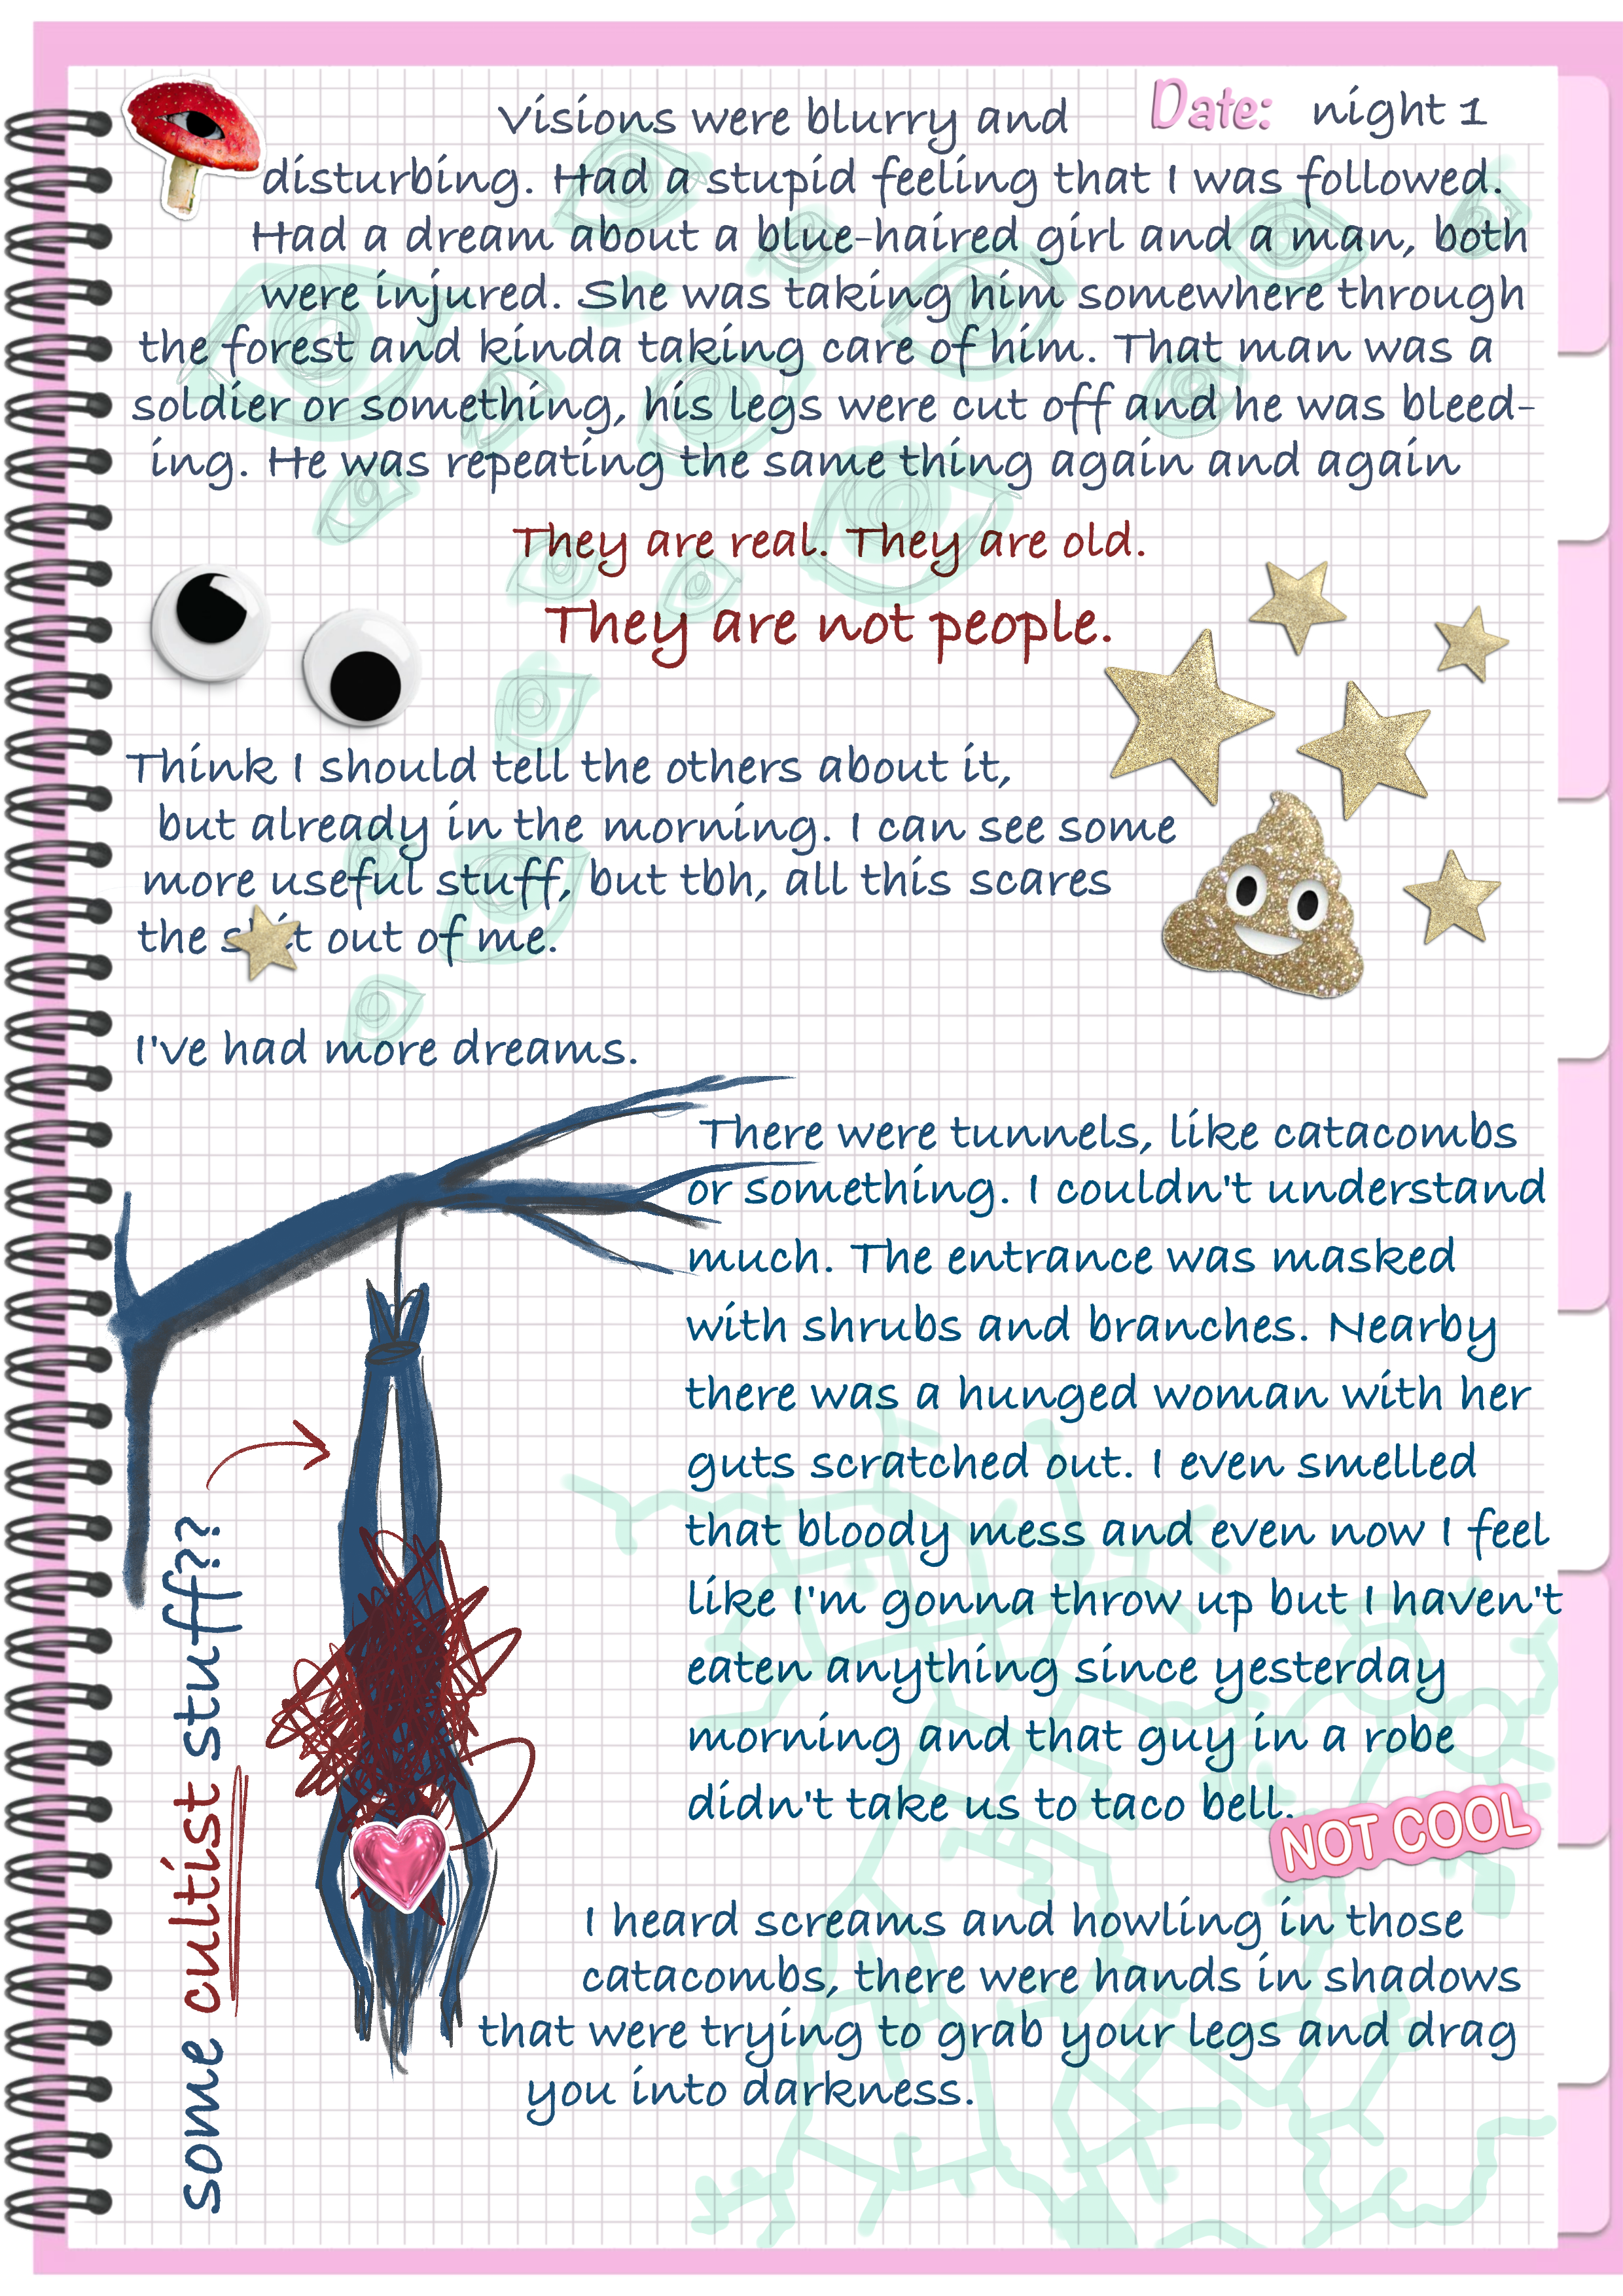 Date: night 1
Visions were blurry and
disturbing. Had a stupid feeling that I was followed.
Had a dream about a blue-haired girl and a man, both
were injured. She was taking him somewhere through
the forest and kinda taking care of him. That man was a
soldier or something, his legs were cut off and he was bleed-
ing. He was repeating the same thing again and again
They are real. They are old.
They are not people.
Think I should tell the others about it,
but already in the morning. I can see some
more useful stuff, but tbh, all this scares
the sh t out of me.
I've had more dreams.
There were tunnels, like catacombs
or something. I couldn't understand
much. The entrance was masked
with shrubs and branches. Nearby
there was a hunged woman with her
guts scratched out. I even smelled
that bloody mess and even now I feel
like I'm gonna throw up but I haven't
eaten anything since yesterday
morning and that guy in a robe
didn't take us to taco bell.
NOT COOL
some cultist stuff??
I heard screams and howling in those
catacombs, there were hands in shadows
that were trying to grab your legs and drag
you into darkness.